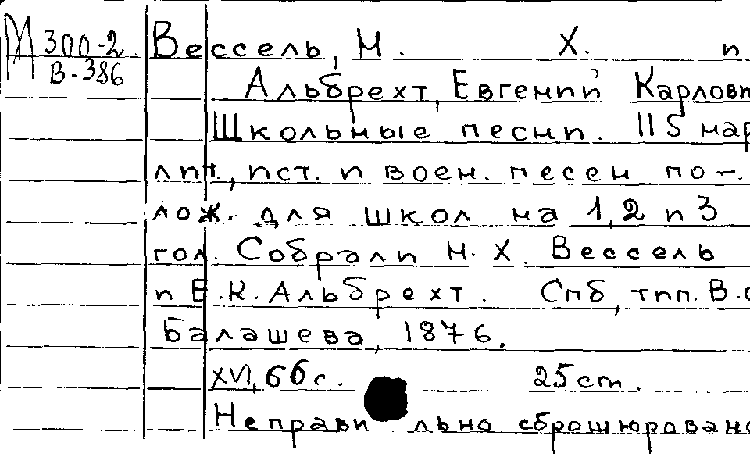 М 300-2
В-386
Вессель, Н. Х. и
Альбрехт, Евгений Карлови
Школьные песни. 115 нар
лит., ист. и воен. песен по-
лож. для школ на 1, 2 и 3
гол. Собрали Н. Х. Вессель
и Е. К. Альбрехт. Спб, тип. В. С.
Балашева, 1876.
XVI, 66 с. 25 см.
Неправильно сброшюровано